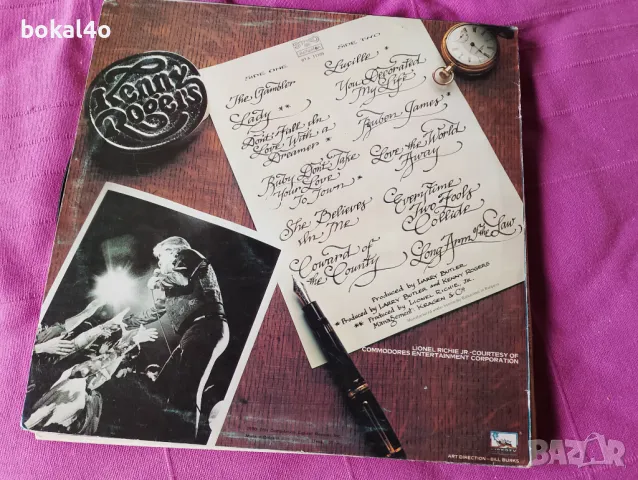 bokal4o
Kenny
Rogers
SIDE ONE
SIDE TWO
The Gambler
Lady **
Don't Fall In
Love With a
Dreamer *
Ruby Don't Take
Your Love
To Town *
She Believes
In Me
Coward of
the County
Lucille
You Decorated
My Life
Reuben James
Love the World
Away
Everytime
Two Fools
Collide
Long Arm of the Law
Produced by LARRY BUTLER
* Produced by LARRY BUTLER and KENNY ROGERS
** Produced by LIONEL RICHIE, JR.
Management: KRAGEN & Co
LIONEL RICHIE JR.-COURTESY OF
COMMODORES ENTERTAINMENT CORPORATION
ART DIRECTION - BILL BURKS
BAZAR